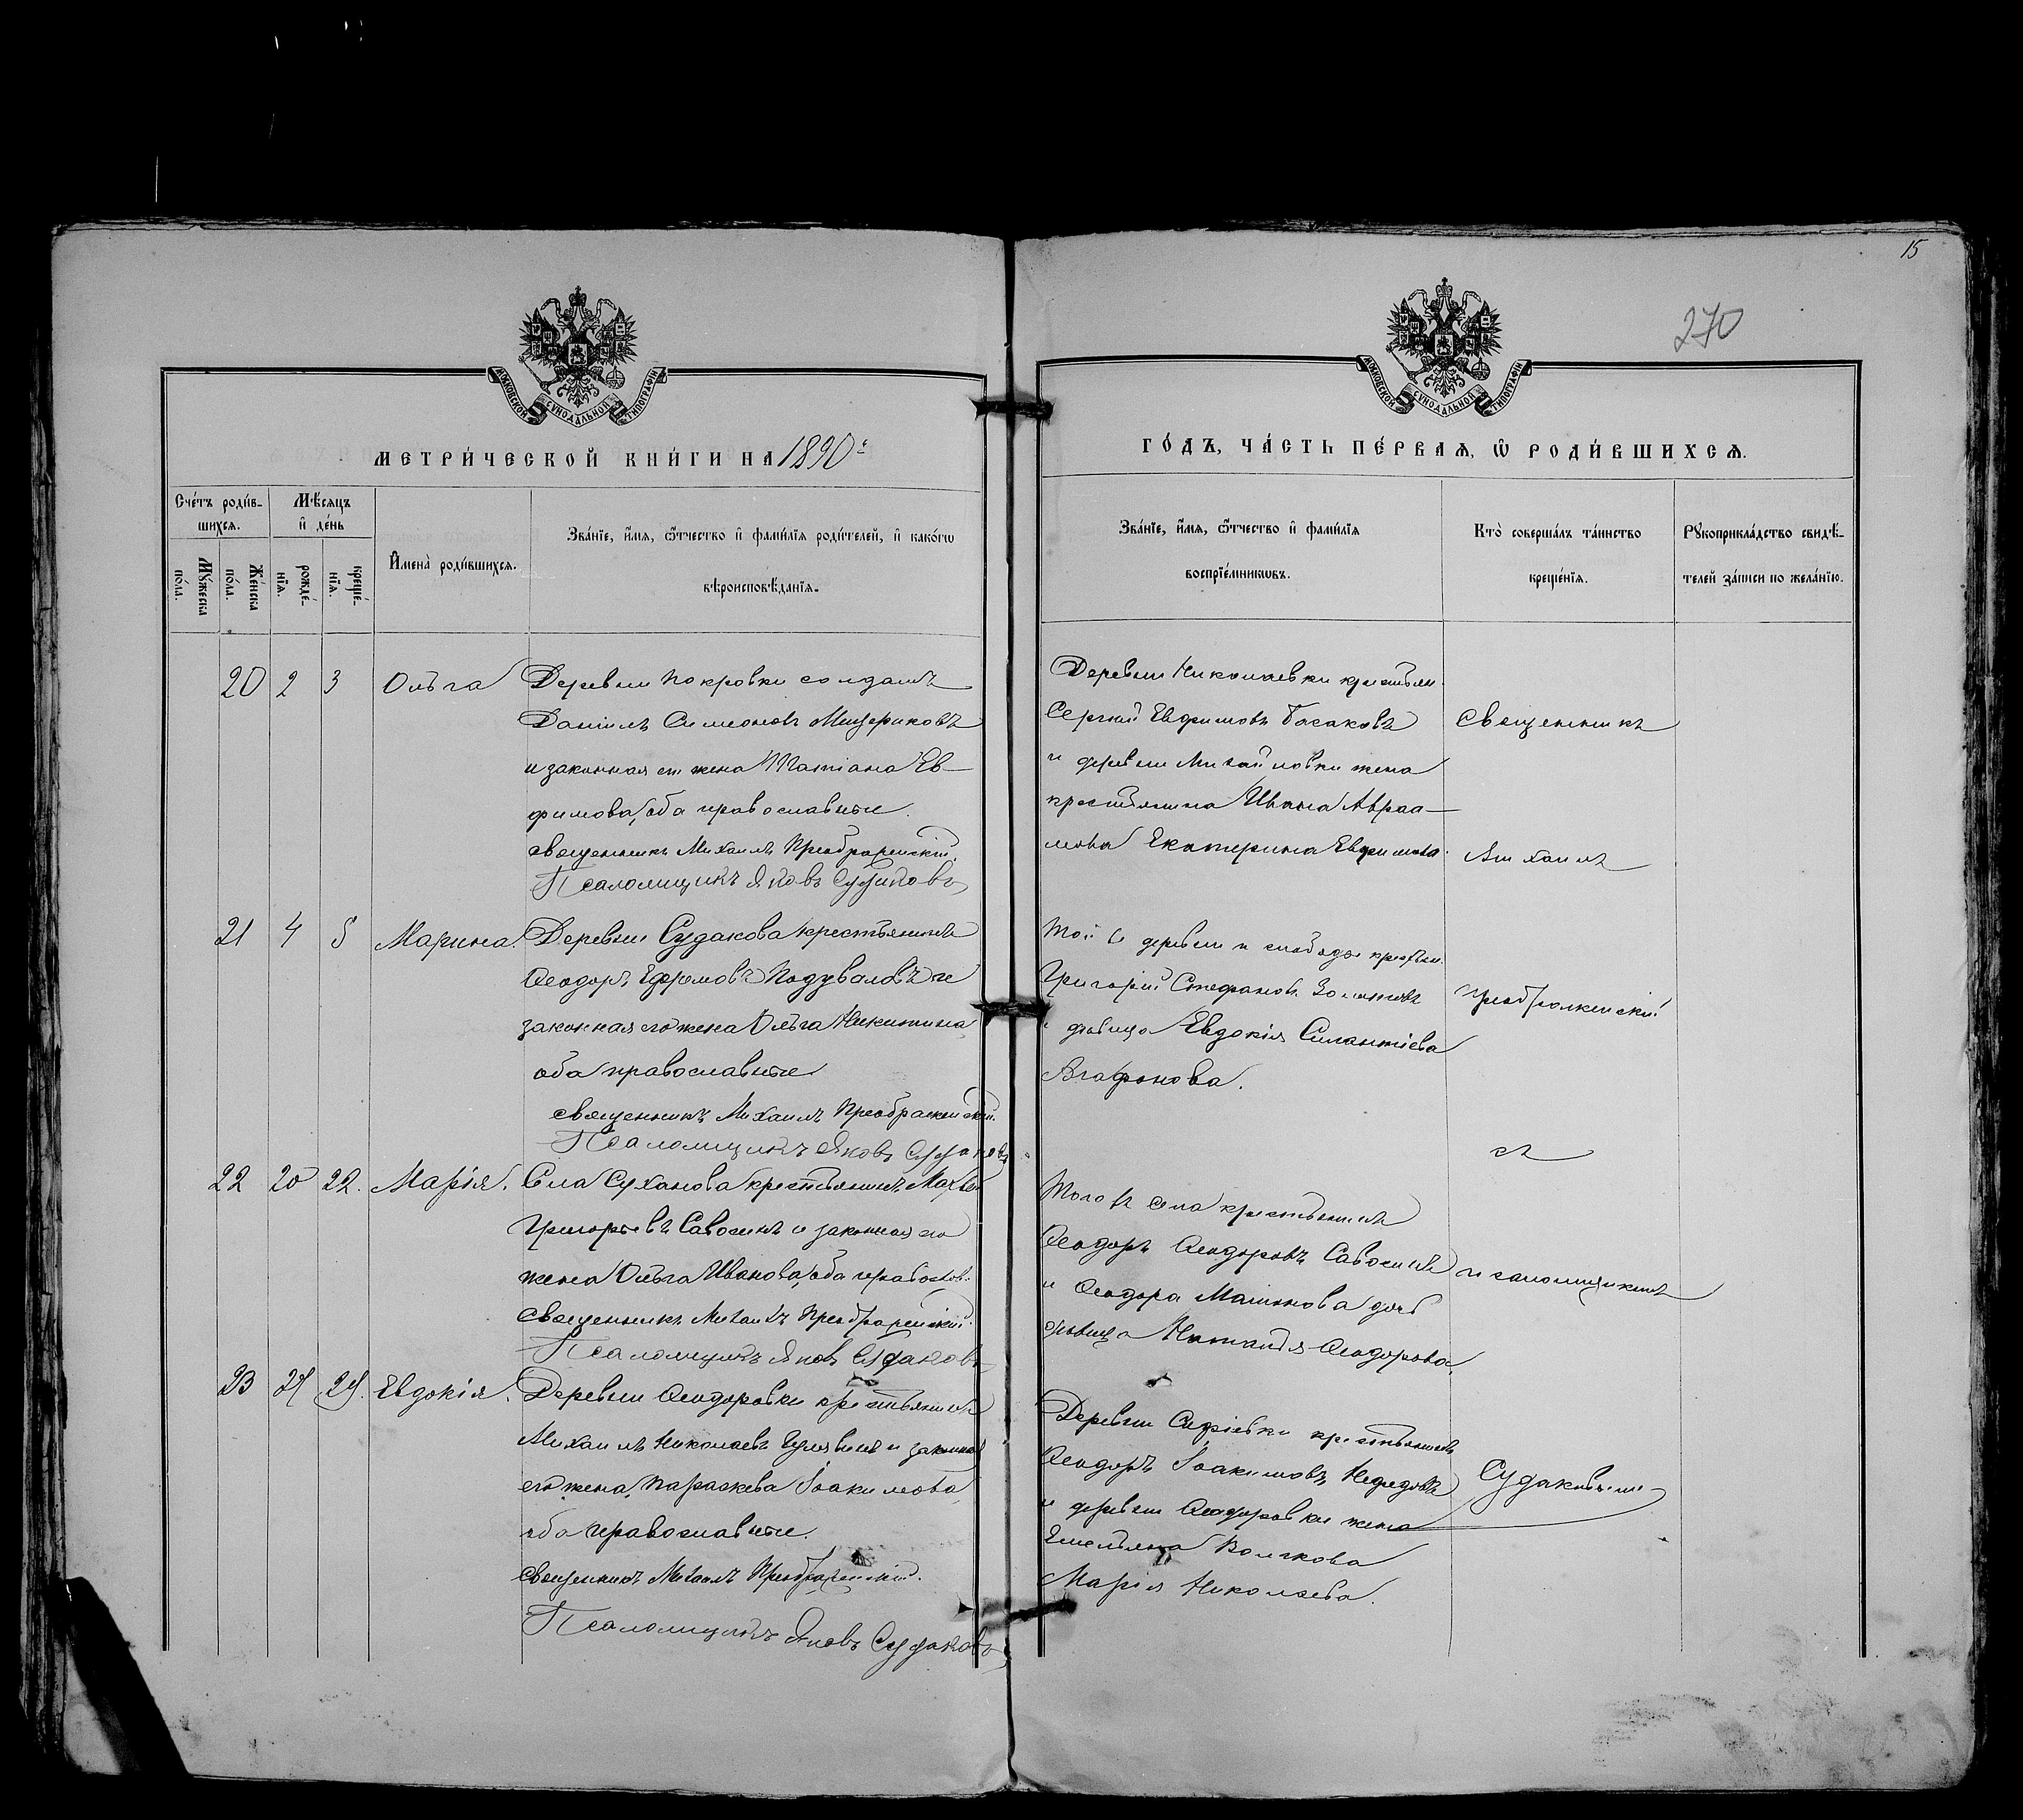 15
270
МОСКОВСКОЙ СУНОДАЛЬНОЙ ТИПОГРАФІИ
МОСКОВСКОЙ СУНОДАЛЬНОЙ ТИПОГРАФІИ
МЕТРИ́ЧЕСКОЙ КНИ́ГИ НА 1890 г
ГО́ДЪ, ЧА́СТЬ ПЕ́РВАѦ, Ѡ҆ РОДИ́ВШИХСѦ.
Сче́тъ роди́в-
шихсѧ.
Мѣ́сѧцъ
и҆ де́нь
Мꙋ́жеска
по́ла.
Же́нска
по́ла.
рожде́-
нїѧ.
креще́-
нїѧ.
И҆мена̀ роди́вшихсѧ.
Зва́нїе, и҆́мѧ, ѻ҆́тчество и҆ фами́лїѧ роди́телей, и҆ како́гѡ
вѣроисповѣ́данїѧ.
Зва́нїе, и҆́мѧ, ѻ҆́тчество и҆ фами́лїѧ
воспрїе́мникѡвъ.
Кто̀ соверша́лъ та́инство
креще́нїѧ.
Рꙋкоприкла́дство свидѣ́-
телей за́писи по жела́нїю.
20 2 3 Ольга Деревни Покровки солдатъ
Даніилъ Симеоновъ Мещериковъ
и законная ег жена Татіана Ев-
фимова, оба православные.
Священникъ Михаилъ Преображенскій.
Псаломщикъ Яковъ Судаковъ
Деревни Николаевки крестьян.
Сергий Евфимовъ Басаковъ
и деревни Михайловки жена
крестьянина Ивана Авраа-
мова Екатерина Евфимова.
Священникъ
Михаилъ
21 4 5 Марина. Деревни Судакова крестьянинъ
Ѳеодоръ Ефремовъ Подуваловъ и
законная его жена Ольга Никитина
оба православные
Священникъ Михаилъ Преображенскій.
Псаломщикъ Яковъ Судаковъ
Той деревни и слободы крестьян.
Григорій Стефановъ Золотовъ
и девица Евдокія Силантіева
Агафонова.
Преображенскій
съ
22 20 22. Марія. Села Суханова крестьянинъ
Григорьевъ Савосинъ и законная его
жена Ольга Иванова, оба православ.
Священникъ Михаилъ Преображенскій.
Псаломщикъ Яковъ Судаковъ
Того села крестьянинъ
Ѳеодоръ Ѳеодоровъ Савосинъ
и Ѳеодора Малинова дочь
девица Наталія Ѳеодорова.
псаломщикомъ
23 27 29. Евдокія. Деревни Ѳеодоровки крестьянинъ
Михаилъ Николаевъ и законная
его жена Параскева Іоакимова
оба православные.
Священникъ Михаилъ Преображенскій.
Псаломщикъ Яковъ Судаковъ
Деревни крестьянинъ
Ѳеодоръ Іоакимовъ Нефедовъ
и деревни Ѳеодоровки жена
Емельяна Волчкова
Марія Николаева.
Судаковымъ